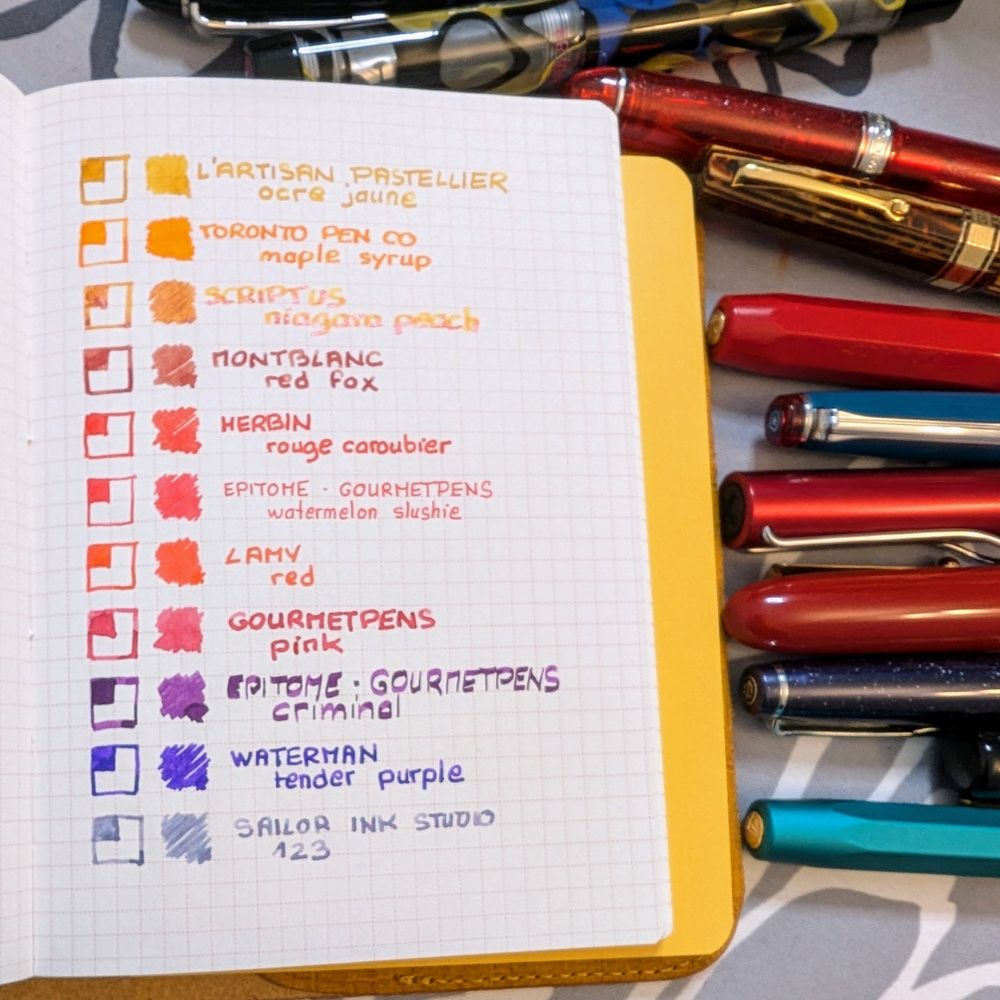 L'ARTISAN PASTELLIER
ocre jaune
TORONTO PEN CO
maple syrup
SCRIPTUS
niagara peach
MONTBLANC
red fox
HERBIN
rouge caroubier
EPITOME · GOURMETPENS
watermelon slushie
LAMY
red
GOURMETPENS
pink
EPITOME · GOURMETPENS
criminal
WATERMAN
tender purple
SAILOR INK STUDIO
123